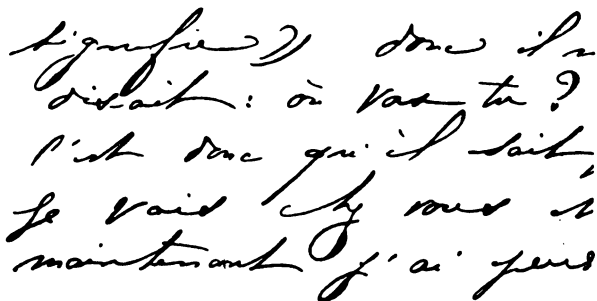 signifie » donc il
disait : où vas tu ?
c'est donc qu'il sait,
Je vais chez vous
maintenant j'ai